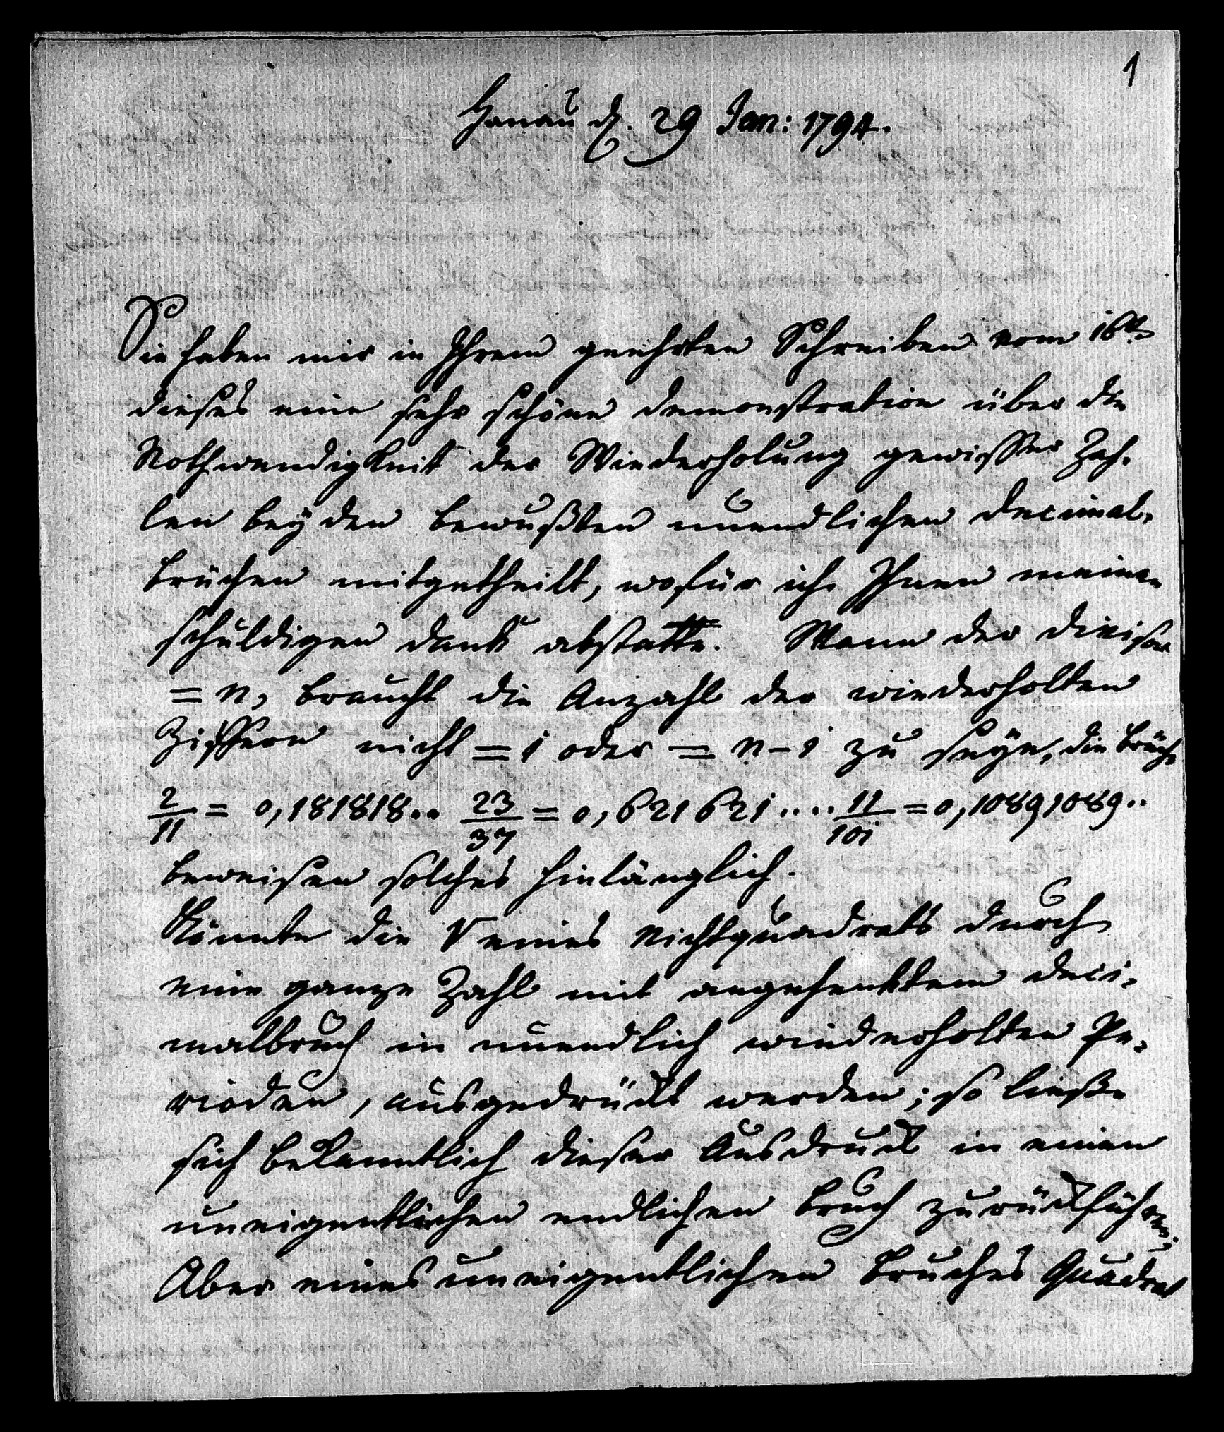 1
Hanau d. 29 Jan: 1794.
Sie haben mir in Ihrem geehrten Schreiben vom 16ten
dieses eine sehr schöne demonstration über die
Nothwendigkeit der Wiederholung gewisser Zah-
len beÿ den bewußten unendlichen decimal-
brüchen mitgetheilt, wofür ich Ihnen meinen
schuldigen dank abstatte. Wenn der divisor
= n, braucht die Anzahl der wiederholten
Ziffern nicht = 1 oder = n-1 zu seÿn, die brüche
2/11 = 0,181818.. 23/37 = 0,621621.... 11/101 = 0,10891089..
beweisen solches hinlänglich.
Könnte die √ eines Nichtquadrats durch
eine ganze Zahl mit angehenktem deci-
malbruch in unendlich wiederholten Pe-
rioden, ausgedrückt werden; so ließe
sich bekanntlich dieser Ausdruck in einen
uneigentlichen endlichen bruch zurückführen;
Aber eines uneigentlichen bruches Quadrat